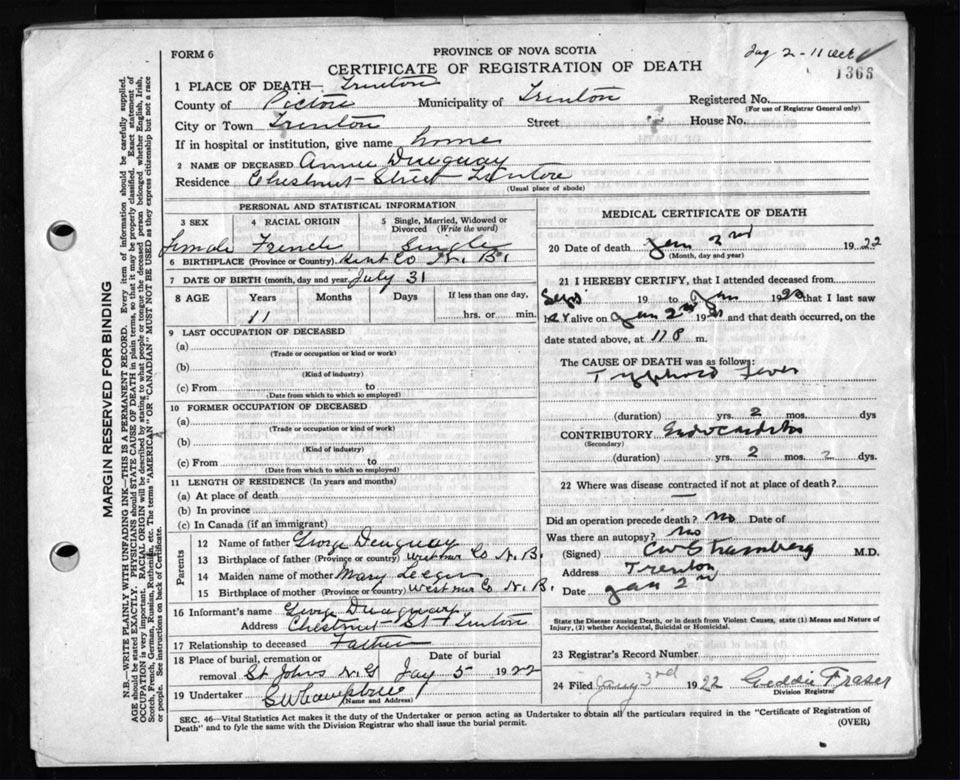 FORM 6
PROVINCE OF NOVA SCOTIA
CERTIFICATE OF REGISTRATION OF DEATH
1365
1 PLACE OF DEATH— Trenton
County of Pictou Municipality of Trenton Registered No.
(For use of Registrar General only)
City or Town Trenton Street House No.
If in hospital or institution, give name home
2 NAME OF DECEASED Annie Duguay
Residence Chestnut Street Trenton
(Usual place of abode)
MARGIN RESERVED FOR BINDING
N.B.—WRITE PLAINLY WITH UNFADING INK—THIS IS A PERMANENT RECORD. Every item of information should be carefully supplied.
AGE should be stated EXACTLY. PHYSICIANS should STATE CAUSE OF DEATH in plain terms, so that it may be properly classified. Exact statement of
OCCUPATION is very important. RACIAL ORIGIN will be described by stating to what people or tongue the deceased person belonged whether English, Irish,
Scotch, French, German, Russian, Ruthenian, etc. The terms "AMERICAN" OR "CANADIAN" MUST NOT BE USED as they express citizenship but not a race
or people. See instructions on back of Certificate.
PERSONAL AND STATISTICAL INFORMATION
3 SEX
female
4 RACIAL ORIGIN
French
5 Single, Married, Widowed or
Divorced (Write the word)
Single
6 BIRTHPLACE (Province or Country) Kent Co N. B.
7 DATE OF BIRTH (month, day and year) July 31
8 AGE
Years
11
Months
Days
If less than one day,
hrs. or min.
9 LAST OCCUPATION OF DECEASED
(a)
(Trade or occupation or kind of work)
(b)
(Kind of industry)
(c) From to
(Date from which to which so employed)
10 FORMER OCCUPATION OF DECEASED
(a)
(Trade or occupation or kind of work)
(b)
(Kind of industry)
(c) From to
(Date from which to which so employed)
11 LENGTH OF RESIDENCE (In years and months)
(a) At place of death
(b) In province
(c) In Canada (if an immigrant)
Parents
12 Name of father George Duguay
13 Birthplace of father (Province or country) Co N. B.
14 Maiden name of mother Mary
15 Birthplace of mother (Province or country) Co N. B.
16 Informant's name George Duguay
Address Chestnut St Trenton
17 Relationship to deceased Father
18 Place of burial, cremation or
removal St Johns N.S
Date of burial
Jay 5 1922
19 Undertaker
(Name and Address)
MEDICAL CERTIFICATE OF DEATH
20 Date of death Jan 2nd 1922
(Month, day and year)
21 I HEREBY CERTIFY, that I attended deceased from
19 to Jan 19 that I last saw
her alive on Jan 2nd 19 and that death occurred, on
date stated above, at 11 P m.
The CAUSE OF DEATH was as follows:
Typhoid Fever
(duration) yrs. 2 mos. dys
CONTRIBUTORY Endocarditis
(Secondary)
(duration) yrs. 2 mos. 2 dys.
22 Where was disease contracted if not at place of death?
—
Did an operation precede death? no Date of
Was there an autopsy? no
(Signed) M.D.
Address Trenton
Date Jan 2n
State the Disease causing Death, or in death from Violent Causes, state (1) Means and Nature of
Injury, (2) whether Accidental, Suicidal or Homicidal.
23 Registrar's Record Number
24 Filed 3rd 1922 Geddie Fraser
Division Registrar
SEC. 46—Vital Statistics Act makes it the duty of the Undertaker or person acting as Undertaker to obtain all the particulars required in the "Certificate of Registration of
Death" and to fyle the same with the Division Registrar who shall issue the burial permit.
(OVER)